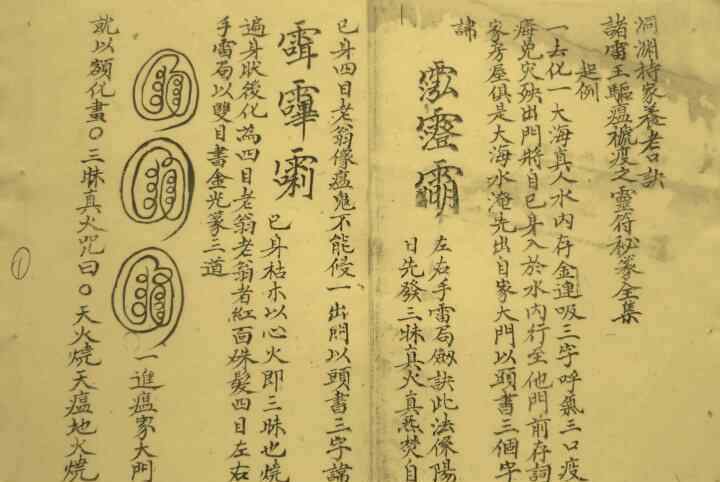 洞淵持家養老口訣
諸雷王驅瘟禳疫之靈符秘篆全集
起例
一去化一大海真人水內存金蓮吸三字呼氣三口疫
毒免灾殃出門將自已身入於水內行至他門前存詞
家房屋俱是大海水淹先出自家大門以頭書三個字
諱
左右手雷局劔訣此法保陽
日先發三昧真火真炁焚自
已身四目老翁像瘟鬼不能侵一出門以頭書三字諱
已身枯木以心火即三昧也燒
遍身狀後化為四目老翁老翁者紅面硃髮四目左右
手雷局以雙目書金光篆三道
一進瘟家大門
就以額化畫〇三昧真火咒曰〇天火燒天瘟地火燒
①